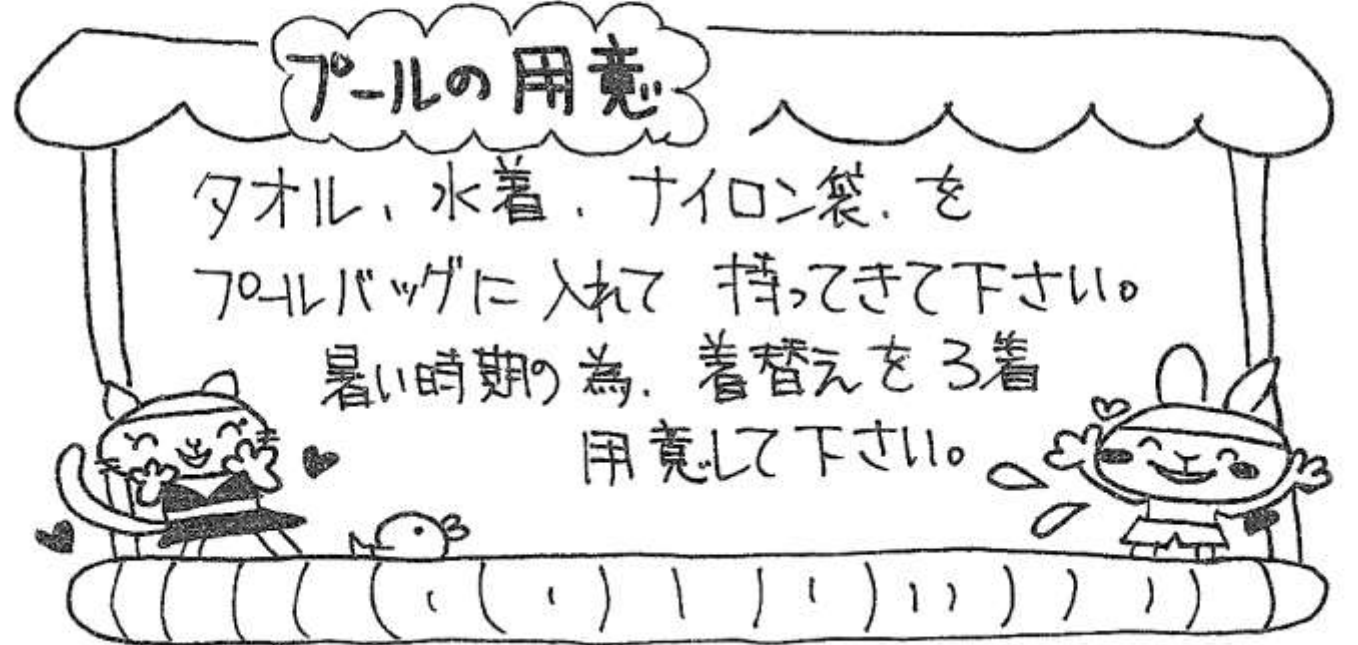 プールの用意
タオル、水着、ナイロン袋、を
プールバッグに入れて 持ってきて下さい。
暑い時期の為、着替えを3着
用意して下さい。